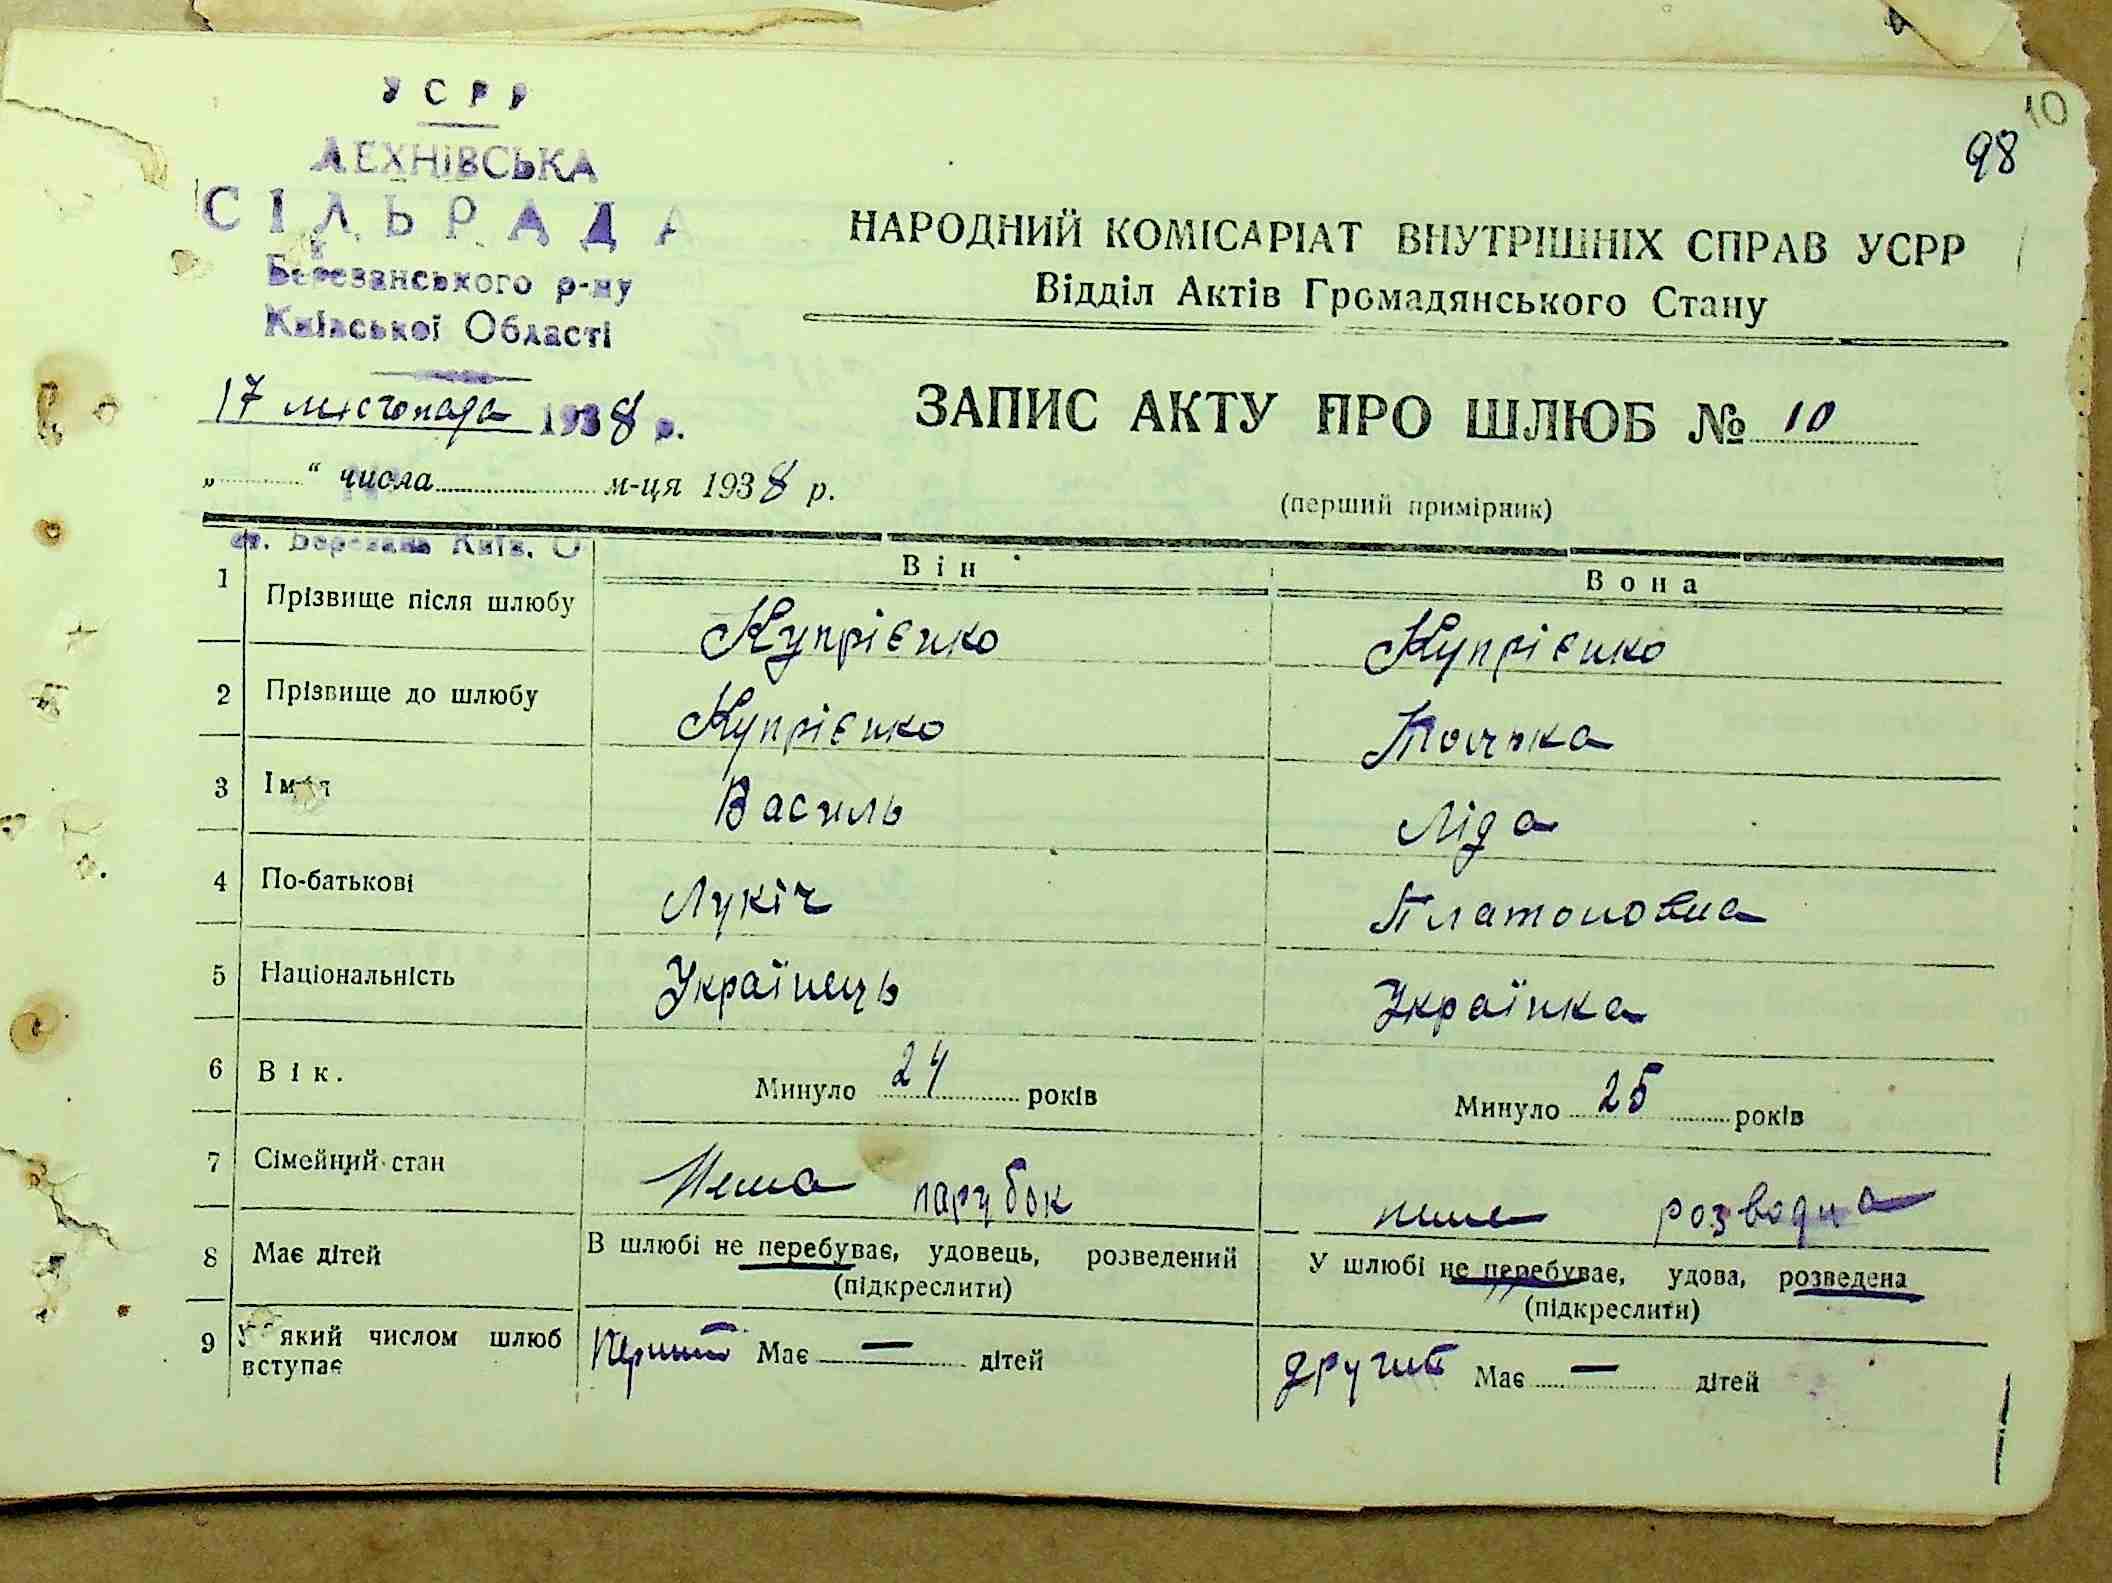 10
98
УСРР
ЛЕХНІВСЬКА
СІЛЬРАДА
Березанського р-ну
Київської Області
17 листопада 1938 р.
НАРОДНИЙ КОМІСАРІАТ ВНУТРІШНІХ СПРАВ УСРР
Відділ Актів Громадянського Стану
ЗАПИС АКТУ ПРО ШЛЮБ № 10
(перший примірник)
„ “ числа м-ця 1938 р.
ст. Березань Київ. О
Він Вона
1 Прізвище після шлюбу Купрієнко Купрієнко
2 Прізвище до шлюбу Купрієнко
3 Імя Василь Ліда
4 По-батькові Лукіч Платоновна
5 Національність Українець Українка
6 Вік. Минуло 24 років Минуло 25 років
7 Сімейний стан Нема парубок неме розводна
8 Має дітей В шлюбі не перебуває, удовець, розведений У шлюбі не перебуває, удова, розведена
(підкреслити) (підкреслити)
9 У який числом шлюб вступає Перший Має — дітей другий Має — дітей